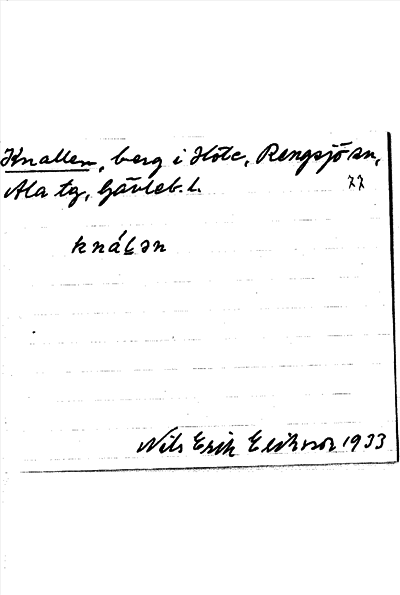 Knallen, berg i Höle, Rengsjö sn,
Ala tg, Gävleb. l.
77
knáḷən
Nils Erik Eriksson 1933